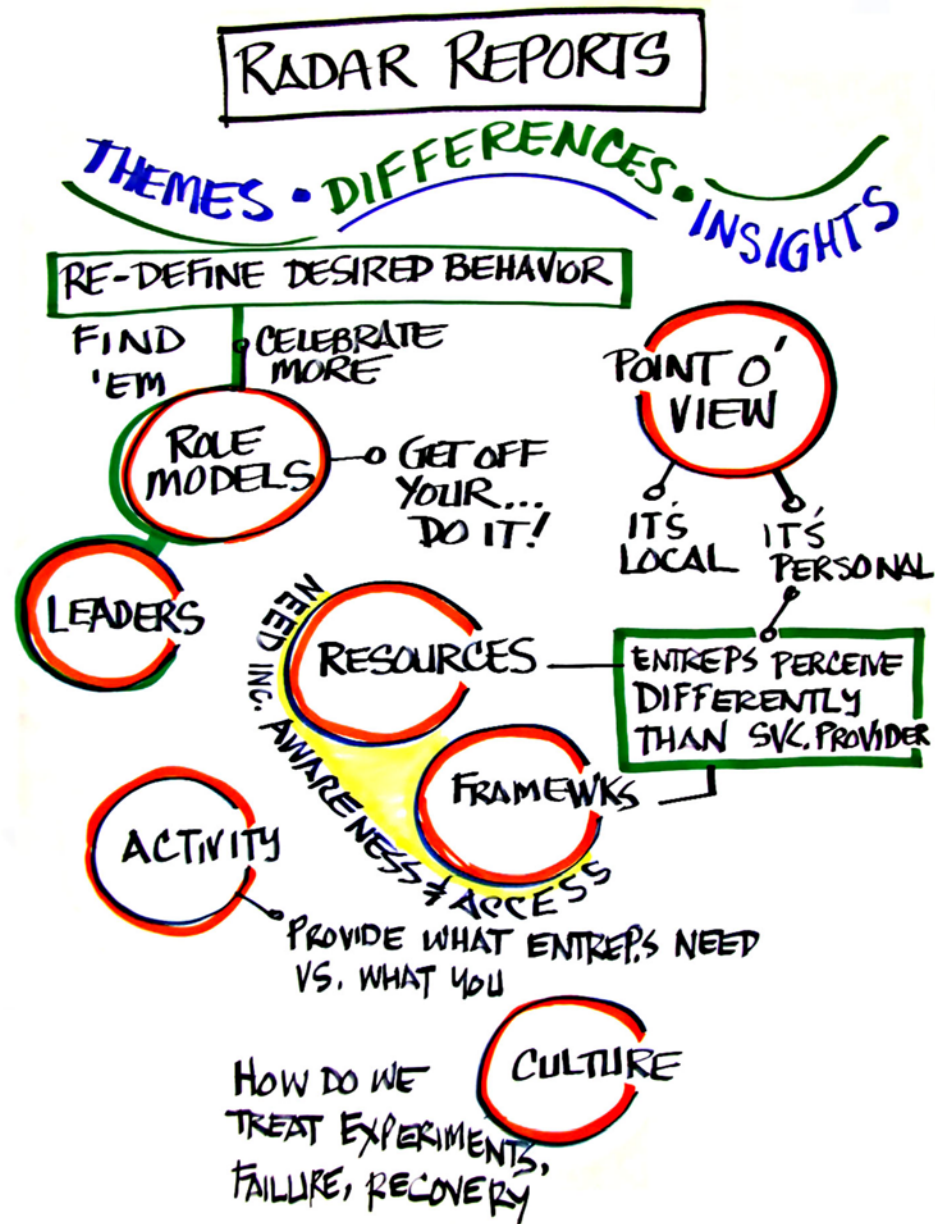 RADAR REPORTS
THEMES • DIFFERENCES • INSIGHTS
RE-DEFINE DESIRED BEHAVIOR
FIND
'EM
CELEBRATE
MORE
ROLE
MODELS
GET OFF
YOUR...
DO IT!
LEADERS
POINT O'
VIEW
IT'S
LOCAL
IT'S
PERSONAL
RESOURCES
ENTREPS PERCEIVE
DIFFERENTLY
THAN SVC. PROVIDER
FRAMEWKS
NEED INC. AWARENESS & ACCESS
ACTIVITY
PROVIDE WHAT ENTREP.S NEED
VS. WHAT YOU
CULTURE
HOW DO WE
TREAT EXPERIMENTS,
FAILURE, RECOVERY